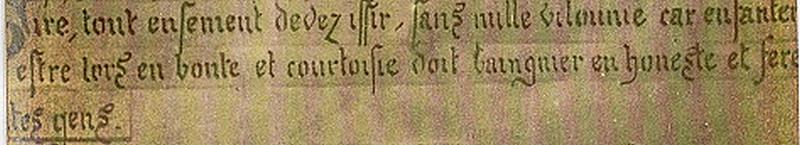 ire, tout ensement devez issir, sans nulle vilounie car enfanter
estre lors en bonte et courtoisie doit baingnier en honeste et fere
les gens.